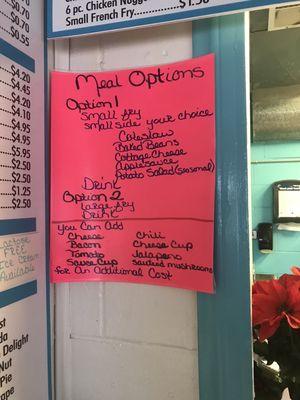 6 pc. Chicken Nugge
Small French Fry
$1.50
$0.70
$0.55
$4.20
$4.20
$4.10
$4.95
$4.95
$4.95
$5.95
$2.50
$2.50
$1.25
$2.50
Lactose
FREE
Ice Cream
Available
Delight
Nut
Pie
Meal Options
Option 1
Small fry
Small side your choice
Coleslaw
Baked Beans
Cottage Cheese
Applesauce
Potato Salad (seasonal)
Drink
Option 2
Large fry
Drink
You Can Add
Cheese Chili
Bacon Cheese Cup
Tomato Jalapeno
Sauce Cup Sautéed mushrooms
for An Additional Cost